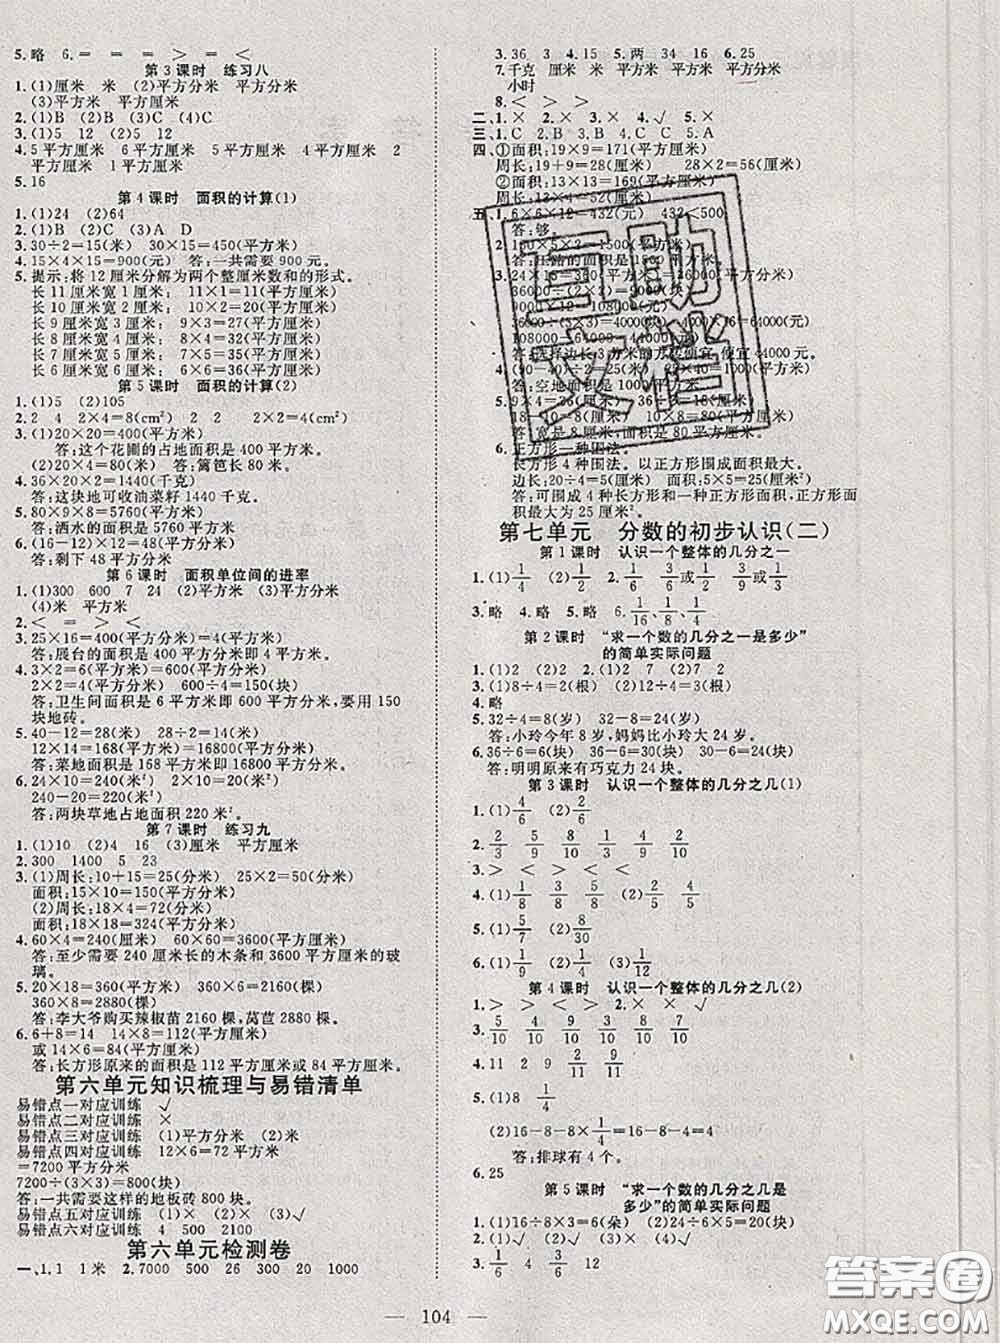 5.略 6.= = = > = <
第3课时 练习八
1.(1)厘米 米 (2)平方分米 平方厘米
(3)平方米 平方厘米
2.(1)B (2)B (3)C (4)C
3.(1)5 12 (2)5 12
4.5平方厘米 6平方厘米 5平方厘米 4平方厘米 2
平方厘米 1平方厘米
5.16
第4课时 面积的计算(1)
1.(1)24 (2)64
2.(1)C (2)B (3)A D
3.30÷2=15(米) 30×15=450(平方米)
4.15×4×1=60(元) 答:一共需要60元。
5.提示:将12厘米分解为两个整厘米数和的形式。
长11厘米宽1厘米; 11×1=11(平方厘米)
长10厘米宽2厘米; 10×2=20(平方厘米)
长9厘米宽3厘米; 9×3=27(平方厘米)
长8厘米宽4厘米; 8×4=32(平方厘米)
长7厘米宽5厘米; 7×5=35(平方厘米)
长6厘米宽6厘米; 6×6=36(平方厘米)
第5课时 面积的计算(2)
1.(1)5 (2)105
2.2 4 2×4=8(cm²) 2 2 2×2=4(cm²)
3.(1)20×20=400(平方米)
答:这个花圃的占地面积是400平方米。
(2)20×4=80(米) 答:篱笆长80米。
4.36×20×2=1440(千克)
答:这块地可收油菜籽1440千克。
5.80×9×8=5760(平方米)
答:洒水的面积是5760平方米
6.(16-12)×12=48(平方厘米)
答:剩下48平方厘米。
第6课时 面积单位间的进率
1.(1)300 600 7 24 (2)平方分米 (3)平方厘米
(4)米 平方米
2.< = > <
3.25×16=400(平方分米)=4(平方米)
答:展台的面积是400平方分米即4平方米。
4.3×2=6(平方米)=600(平方分米)
2×2=4(平方分米) 600÷4=150(块)
答:卫生间面积是6平方米即600平方分米,要用150
块地砖。
5.40-12=28(米) 28÷2=14(米)
12×14=168(平方米)=16800(平方分米)
答:菜地面积是168平方米即16800平方分米。
6.24×10=240(平方米) 2×10=20(平方米)
240-20=220(平方米)
答:两块草地占地面积220米²。
第7课时 练习九
1.(1)10 (2)4 16 (3)厘米 平方厘米
2.300 1400 5 23
3.(1)周长:10+15=25(分米) 25×2=50(分米)
面积:15×10=150(平方分米)
(2)周长:18×4=72(分米)
面积:18×18=324(平方分米)
4.60×4=240(厘米) 60×60=3600(平方厘米)
答:至少需要240厘米长的木条和3600平方厘米的玻
璃。
5.20×18=360(平方米) 360×6=2160(棵)
360×8=2880(棵)
答:李大爷购买辣椒苗2160棵,莴苣2880棵。
6.6+8=14 14×8=112(平方厘米)
或14×6=84(平方厘米)
答:长方形原来的面积是112平方厘米或84平方厘米。
第六单元知识梳理与易错清单
易错点一对应训练 √
易错点二对应训练 ×
易错点三对应训练 (1)平方分米 (2)平方米
易错点四对应训练 12×6=72(平方米)
=7200平方分米
7200÷(3×3)=800(块)
答:一共需要这样的地板砖800块。
易错点五对应训练 (1)× (2)× (3)√
易错点六对应训练 4 500 2100
第六单元检测卷
一、1.1 1米 2.7000 500 26 300 20 1000
3.36 3 4.15 5.两 34 16 6.25
7.千克 厘米 米 平方厘米 平方米 平方分米
小时
8.< > > >
二、1.× 2.× 3.× 4.√ 5.×
三、1.C 2.B 3.B 4.C 5.A
四、①面积:19×9=171(平方厘米)
周长:19+9=28(厘米) 28×2=56(厘米)
②面积:13×13=169(平方厘米)
周长:13×4=52(厘米)
五、1.6×6×12=432(元) 432<500
答:够。
答:空地面积是1000平方米。
6.正方形一种围法。
长方形4种围法。以正方形围成面积最大。
边长:20÷4=5(厘米) 面积:5×5=25(厘米²)
答:可围成4种长方形和一种正方形面积,正方形面
积最大为25厘米²。
第七单元 分数的初步认识(二)
第1课时 认识一个整体的几分之一
1.(1)1/4 (2)1/2 2.1/6 3/6或1/2 2/6或1/3
3.略 4.略 5.略 6.1/16、1/8、1/4
第2课时 “求一个数的几分之一是多少”
的简单实际问题
1.(1)2 (2)2 2.(1)2 7 (2)7 2
3.(1)8÷4=2(根) (2)12÷4=3(根)
4.略
5.32÷4=8(岁) 32-8=24(岁)
答:小玲今年8岁,妈妈比小玲大24岁。
6.36÷6=6(块) 36-6-6=24(块)
答:明明原来有巧克力24块。
第3课时 认识一个整体的几分之几(1)
1.(1)4/6 (2)2/6
2.2/3 9/10 5/8 3/10 4/9 6/10
3.> < > < < <
4.(1)1/8 3/8 5/8 (2)1/4 2/4
5.(1)5/7 (2)8/30
6.(1)1/9 (2)1/6 (3)1/12
第4课时 认识一个整体的几分之几(2)
1.> > < > 2.× × √
3.5/10 4/10 7/9 6/9 2/6 4/6
4.11 2 9 2/11 9/11
5.(1)8 1/4 √
(2)16-8-8×1/4=16-8-4=4
答:排球有4个。
6.25
第5课时 “求一个数的几分之几是
多少”的简单实际问题
1.(1)12÷6×3=6(朵) (2)24÷6×5=20(枝)
2.(1)√ (2)× (3)× (4)√
3.1/6 4 2/6
104
互助文档
答案圈
MXQE.COM